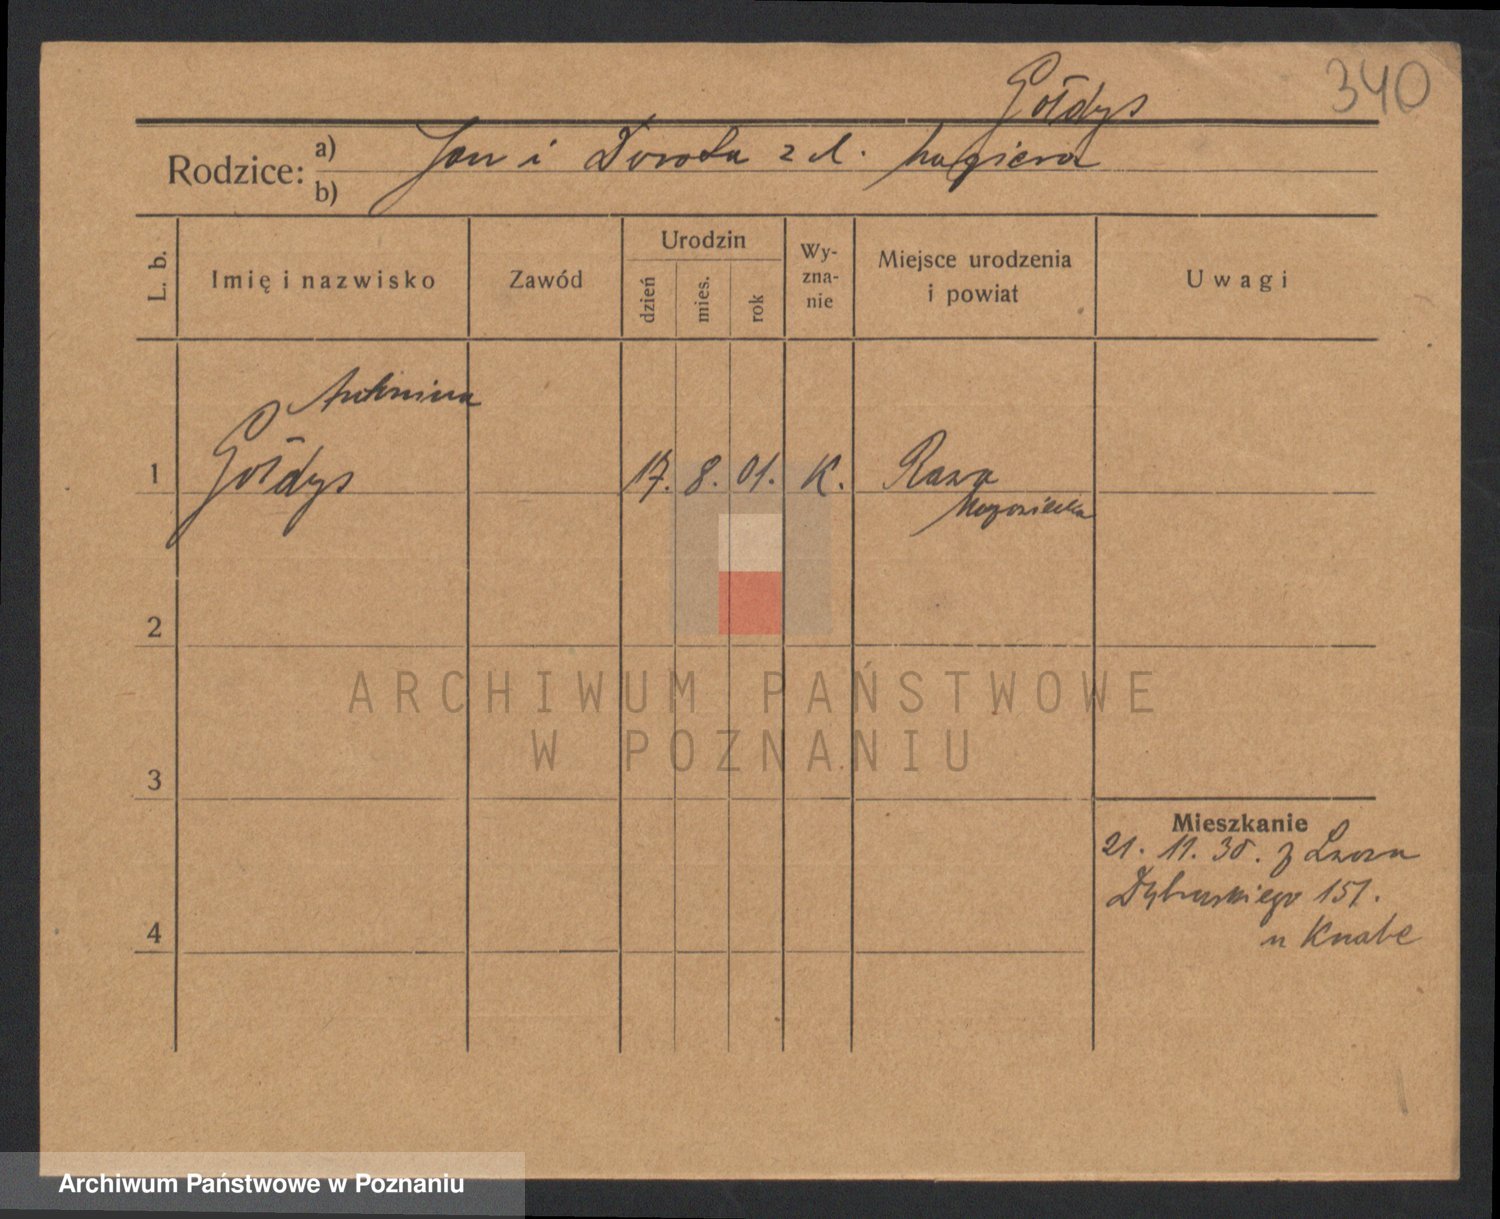 340
Gołdys
Rodzice: a) Jan i Dorota z d.
b)
L. b.
Imię i nazwisko
Zawód
Urodzin
dzień
mies.
rok
Wy-
zna-
nie
Miejsce urodzenia
i powiat
Uwagi
Antonina
1 Gołdys 17. 8. 01. K. Rawa
Mazowiecka
2
3
4
Mieszkanie
21. 11. 38. z
151.
u Knabe
ARCHIWUM PAŃSTWOWE
W POZNANIU
Archiwum Państwowe w Poznaniu